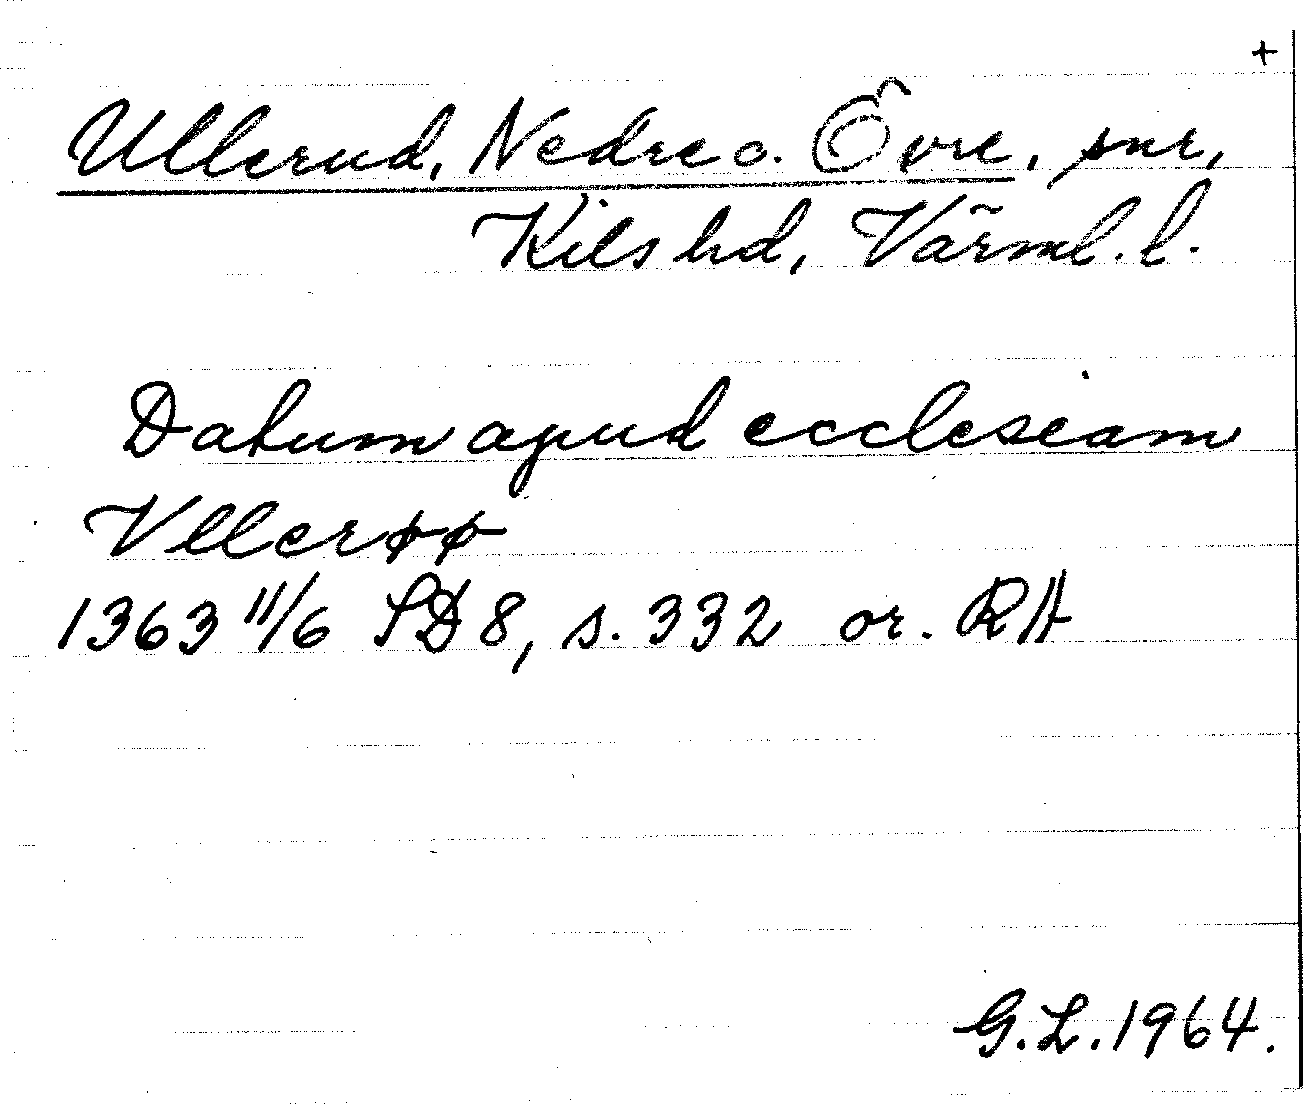 +
Ullerud, Nedre o. Övre, snr,
Kils hd, Värml. l.
Datum apud ecclesiam
Vllerøø
1363 11/6 SD 8, s. 332 or. RA
G.L. 1964.